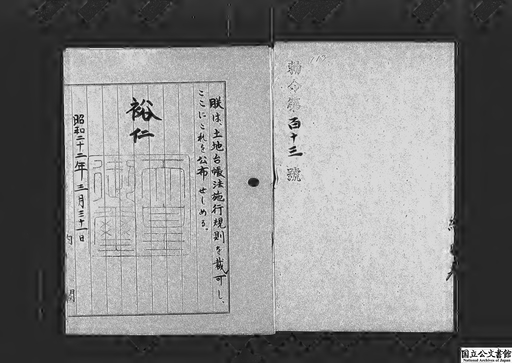 勅令第百十三號
朕は、土地台帳法施行規則を裁可し、
ここにこれを公布せしめる。
裕仁
昭和二十二年三月三十一日
内閣
国立公文書館
National Archives of Japan